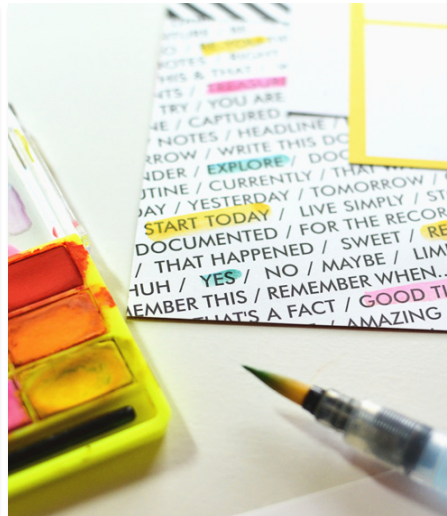 THIS & THAT
NTS / TREASURE
TRY / YOU ARE
NE / CAPTURED
NOTES / HEADLINE /
RROW / WRITE THIS DO
NDER / EXPLORE / DOC
UTINE / CURRENTLY / THAT
DAY / YESTERDAY / TOMORROW /
START TODAY / LIVE SIMPLY / ST
DOCUMENTED / FOR THE RECOR
/ THAT HAPPENED / SWEET / RE
HUH / YES / NO / MAYBE / LIM
EMBER THIS / REMEMBER WHEN...
THAT'S A FACT / GOOD TI
AMAZING